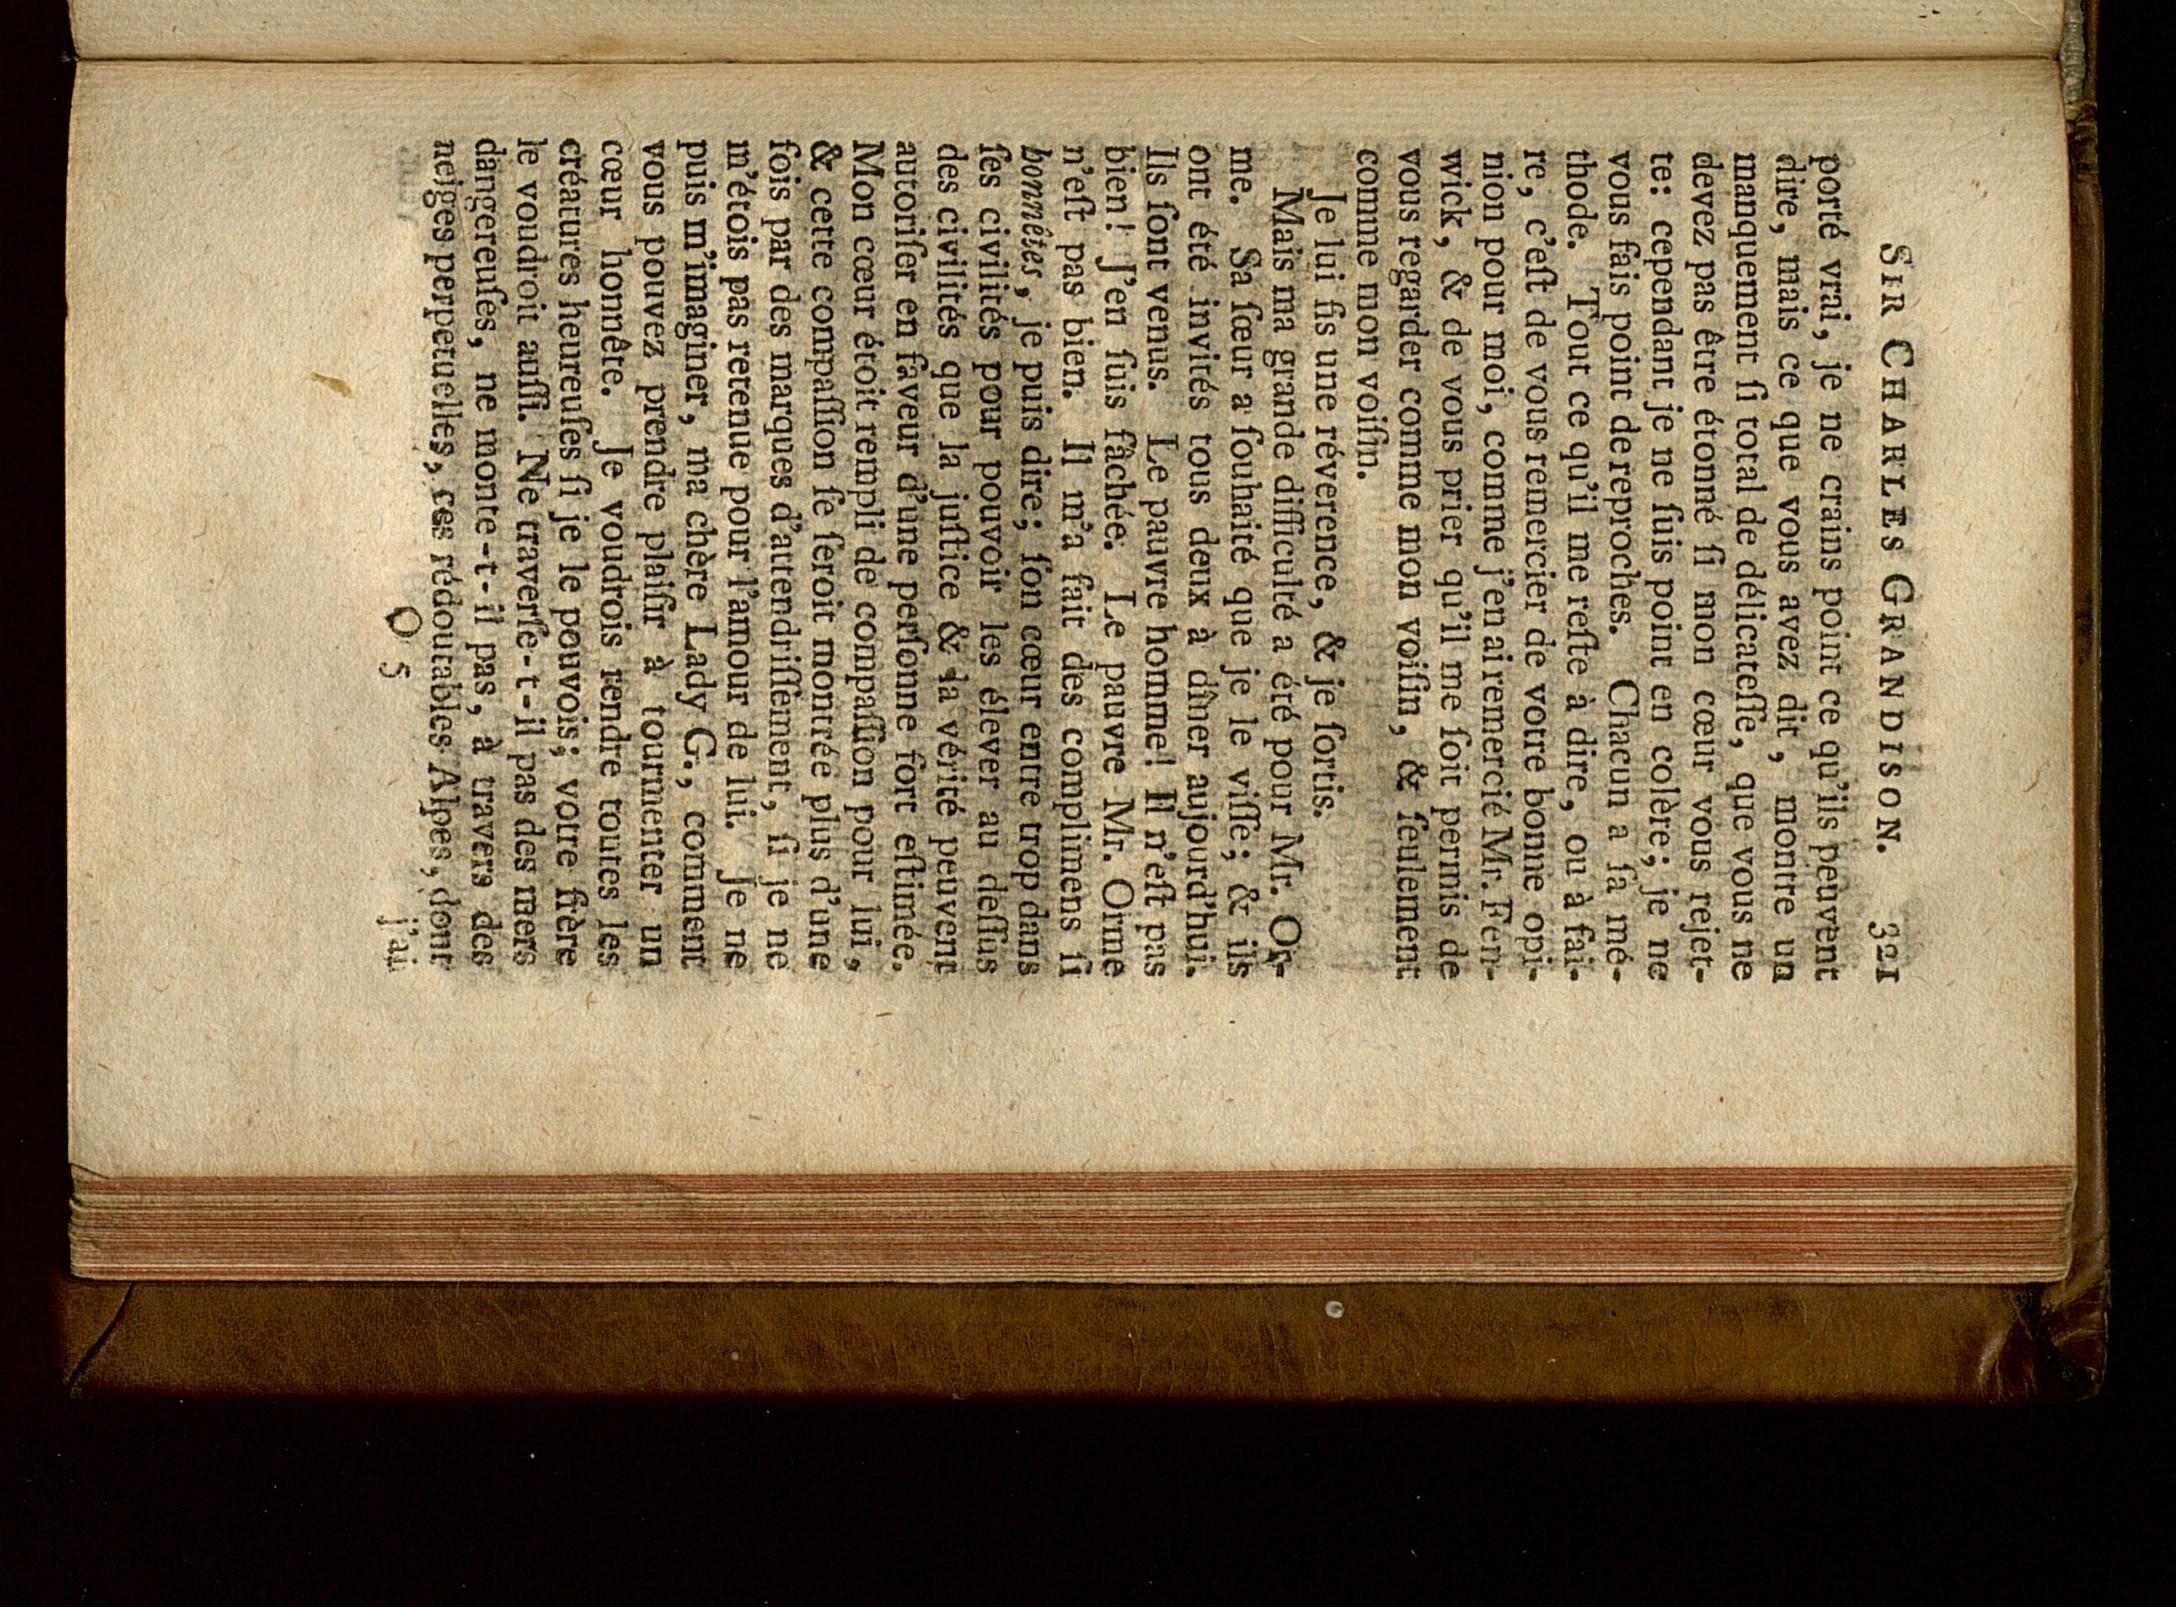 SIR CHARLES GRANDISON. 321
porté vrai, je ne crains point ce qu'ils peuvent
dire, mais ce que vous avez dit, montre un
manquement ſi total de délicateſſe, que vous ne
devez pas être étonné ſi mon cœur vous rejet-
te: cependant je ne ſuis point en colère; je ne
vous fais point de reproches. Chacun a ſa mé-
thode. Tout ce qu'il me reſte à dire, ou à fai-
re, c'eſt de vous remercier de votre bonne opi-
nion pour moi, comme j'en ai remercié Mr. Fen-
wick, & de vous prier qu'il me ſoit permis de
vous regarder comme mon voiſin, & ſeulement
comme mon voiſin.
Je lui fis une réverence, & je ſortis.
Mais ma grande difficulté a été pour Mr. Or-
me. Sa ſœur a ſouhaité que je le viſſe; & ils
ont été invités tous deux à dîner aujourd'hui.
Ils ſont venus. Le pauvre homme! Il n'eſt pas
bien! J'en ſuis fâchée. Le pauvre Mr. Orme
n'eſt pas bien. Il m'a fait des complimens ſi
honnêtes, je puis dire; ſon cœur entre trop dans
ſes civilités pour pouvoir les élever au deſſus
des civilités que la juſtice & la vérité peuvent
autoriſer en faveur d'une perſonne fort eſtimée.
Mon cœur étoit rempli de compaſſion pour lui,
& cette compaſſion ſe ſeroit montrée plus d'une
fois par des marques d'attendriſſement, ſi je ne
m'étois pas retenue pour l'amour de lui. Je ne
puis m'imaginer, ma chère Lady G., comment
vous pouvez prendre plaiſir à tourmenter un
cœur honnête. Je voudrois rendre toutes les
créatures heureuſes ſi je le pouvois; votre frère
le voudroit auſſi. Ne traverſe-t-il pas des mers
dangereuſes, ne monte-t-il pas, à travers des
neiges perpetuelles, ces rédoutables Alpes, dont
O 5 j'ai